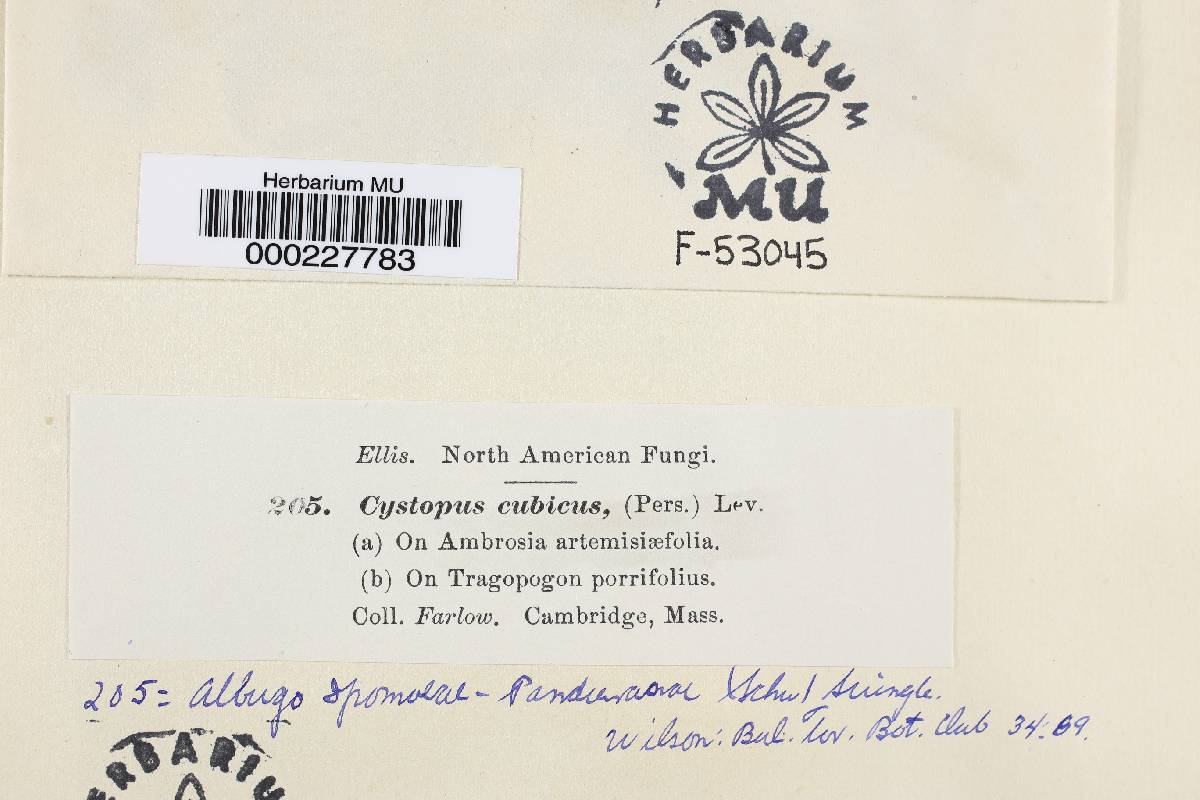 HERBARIUM
MU
F-53045
Herbarium MU
000227783
Ellis. North American Fungi.
205. Cystopus cubicus, (Pers.) Lev.
(a) On Ambrosia artemisiæfolia.
(b) On Tragopogon porrifolius.
Coll. Farlow. Cambridge, Mass.
205= Albugo Ipomoeae - Panduranae (Schw) Swingle.
Wilson: Bul. Tor. Bot. Club 34: 69.
HERBARIUM